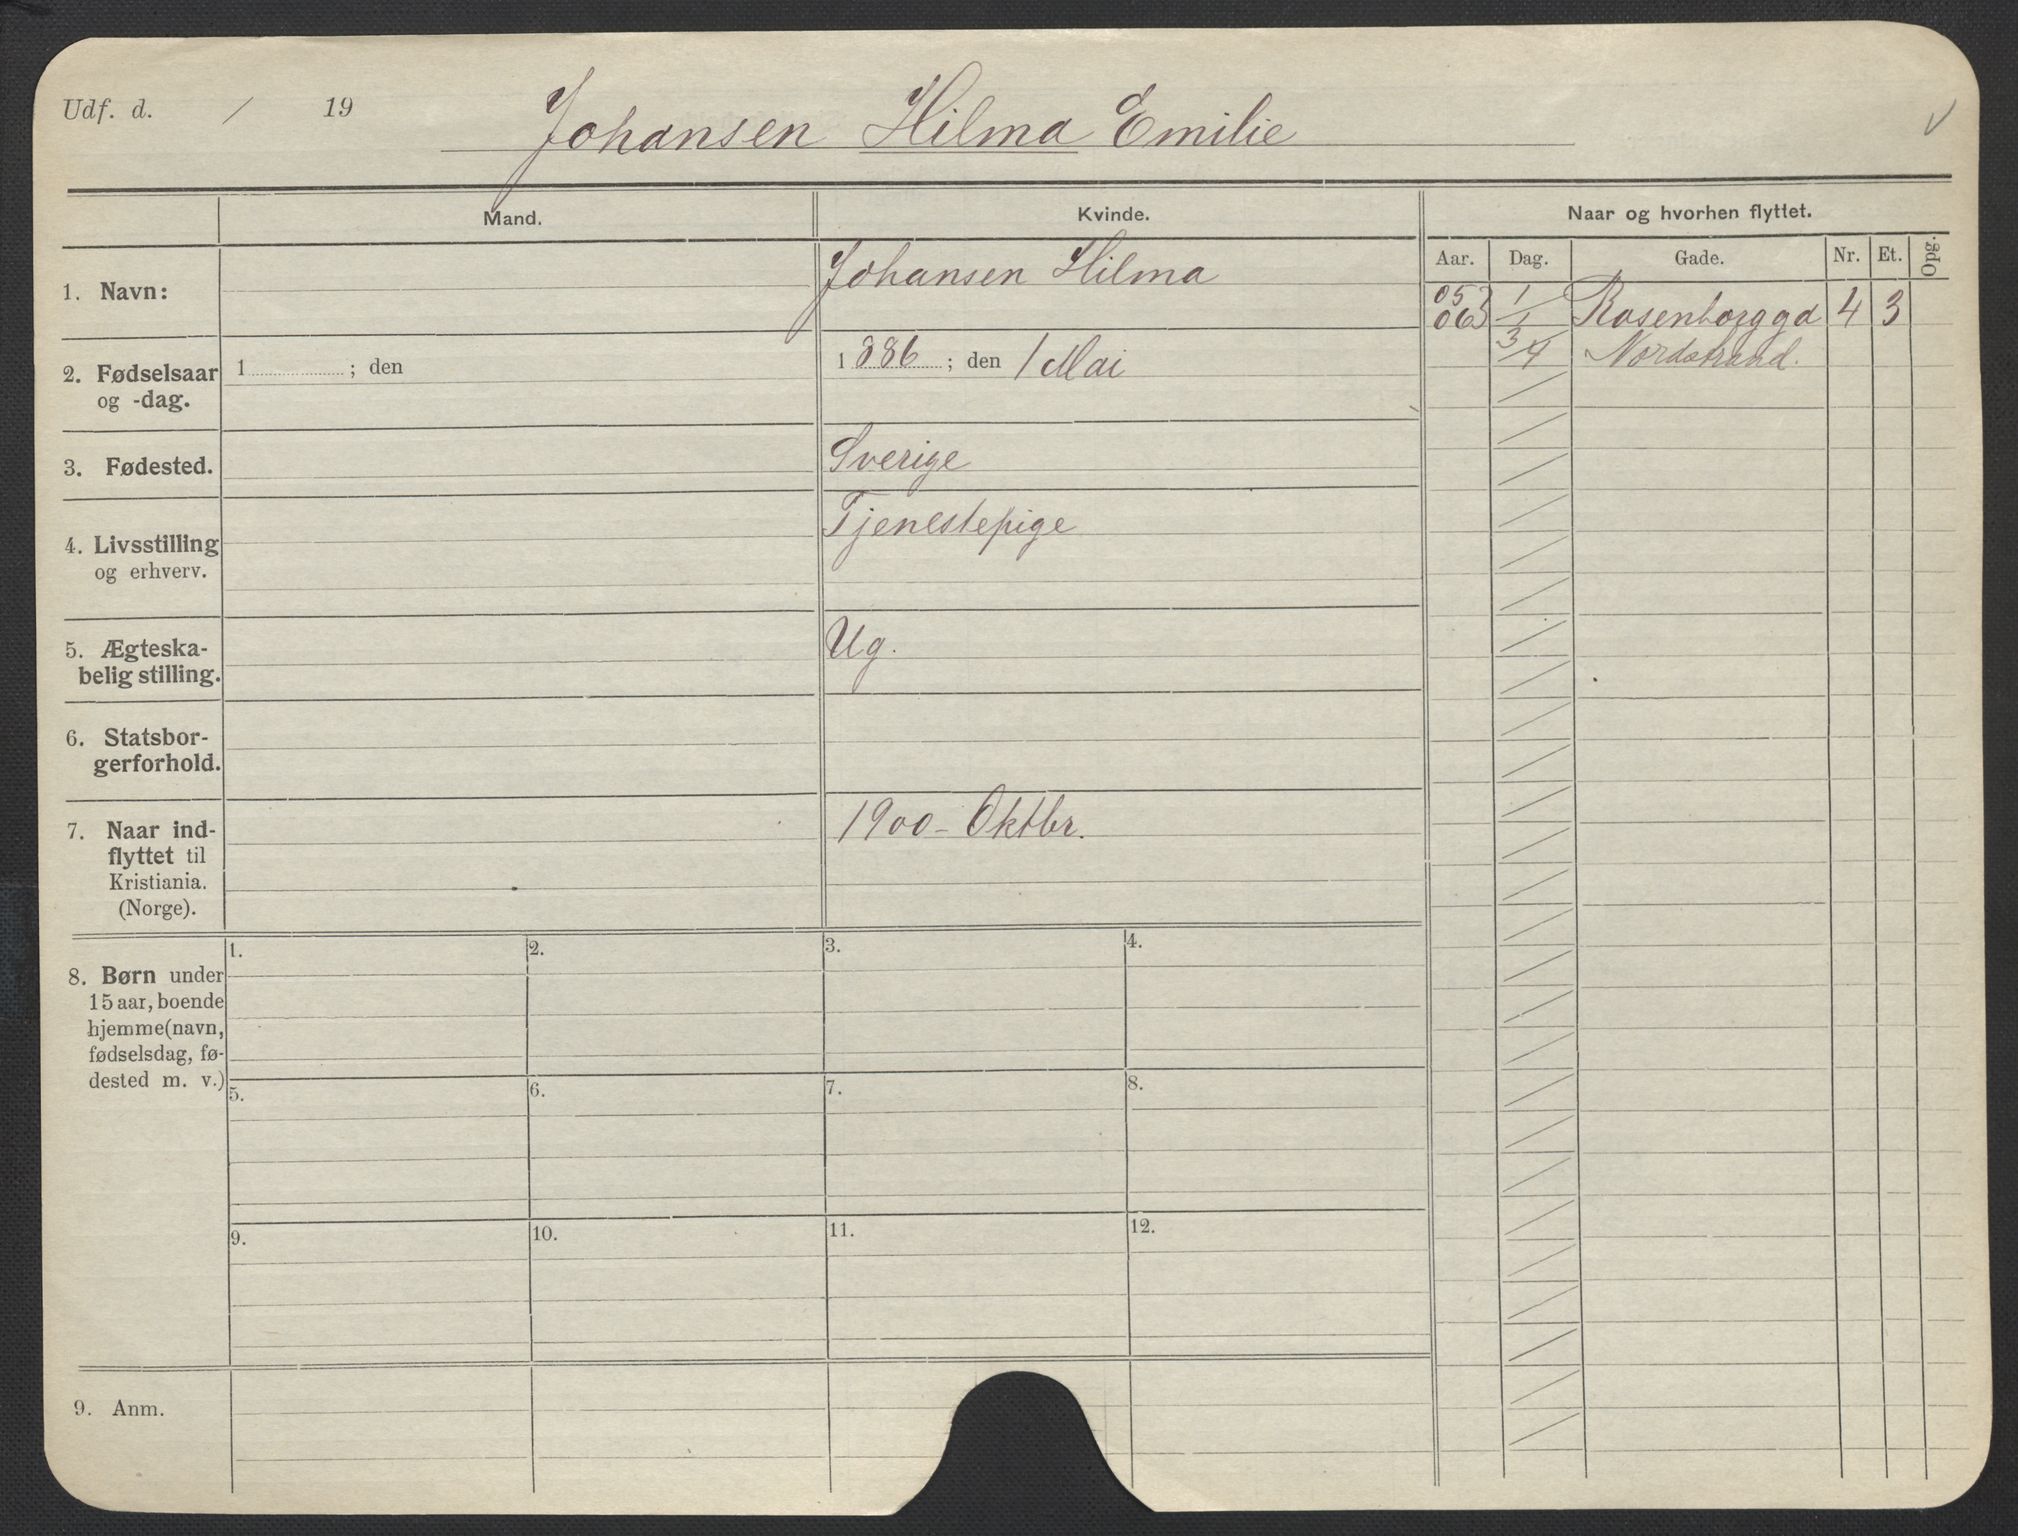 Udf. d. / 19
Johansen Hilma Emilie
Mand.
Kvinde.
Naar og hvorhen flyttet.
Aar. Dag. Gade. Nr. Et. Opg.
1. Navn:
Johansen Hilma
05 1/ Rosenborggd 4 3
06 1
3/4 Nordstrand.
2. Fødselsaar
og -dag.
1 ; den
1 886 ; den 1 Mai
3. Fødested.
Sverige
4. Livsstilling
og erhverv.
Tjenestepige
5. Ægteska-
belig stilling.
Ug.
6. Statsbor-
gerforhold.
7. Naar ind-
flyttet til
Kristiania.
(Norge).
1900 - Oktbr.
8. Børn under
15 aar, boende
hjemme (navn,
fødselsdag, fø-
dested m. v.)
1. 2. 3. 4.
5. 6. 7. 8.
9. 10. 11. 12.
9. Anm.